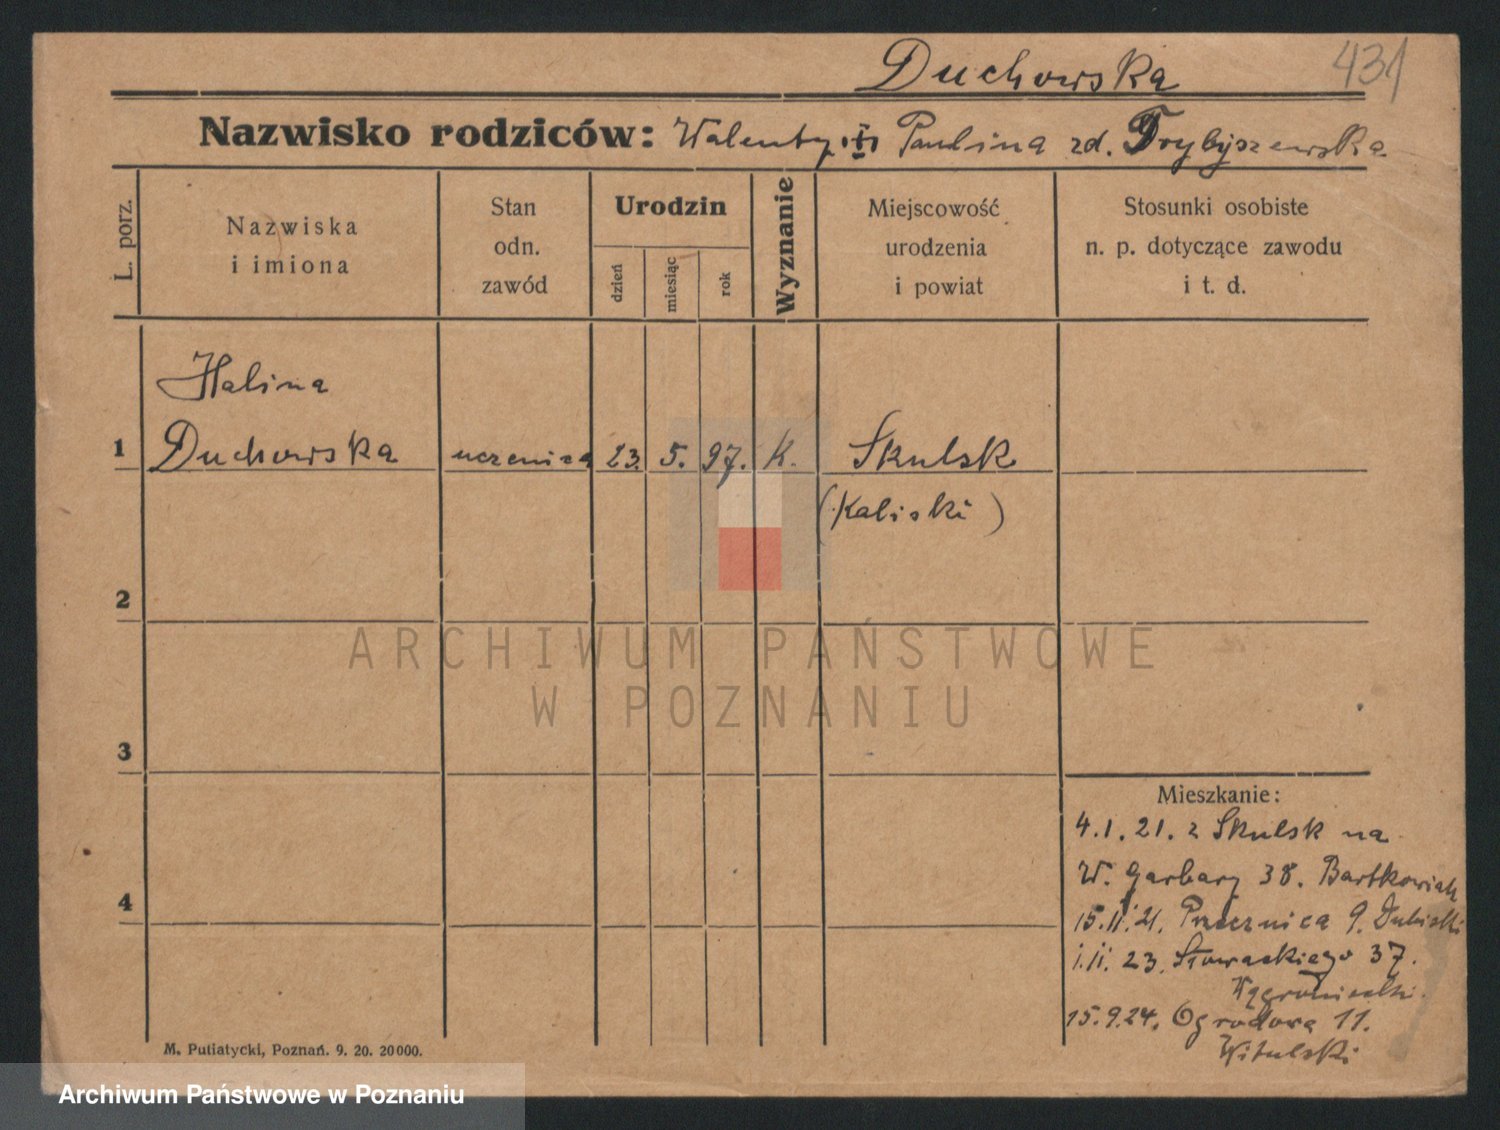 Duchowska 431
Nazwisko rodziców: Walenty i Paulina zd. Trybyszewska
L. porz.
Nazwiska
i imiona
Stan
odn.
zawód
Urodzin
dzień
miesiąc
rok
Wyznanie
Miejscowość
urodzenia
i powiat
Stosunki osobiste
n. p. dotyczące zawodu
i t. d.
Halina
1 Duchowska uczenica 23. 5. 97. K. Skulsk
(Kaliski)
2
ARCHIWUM PAŃSTWOWE
W POZNANIU
3
Mieszkanie:
4.1.21. z Skulsk na
W. Garbary 38. Bartkowiak
4
15.11.21. Przecznica 9. Dubiski
1.11.23. Słowackiego 37.
15.9.24. Ogrodowa 11.
Witulski
M. Putiatycki, Poznań. 9. 20. 20000.
Archiwum Państwowe w Poznaniu